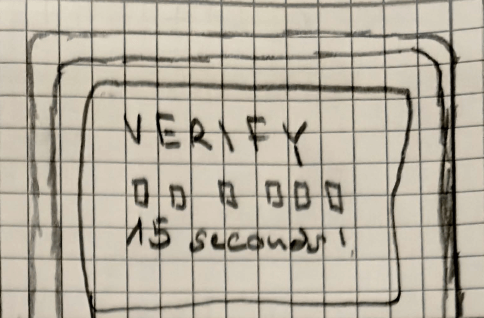 VERIFY
▯▯▯▯▯▯
15 seconds!